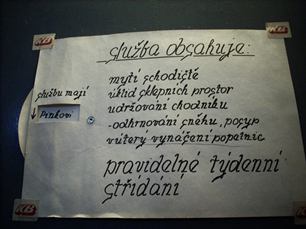 služba obsahuje:
mytí schodiště
úklid sklepních prostor
udržování chodníku
-odhrnování sněhu, posyp
v úterý vynášení popelnic
pravidelné týdenní
střídání
službu mají
Pinkovi